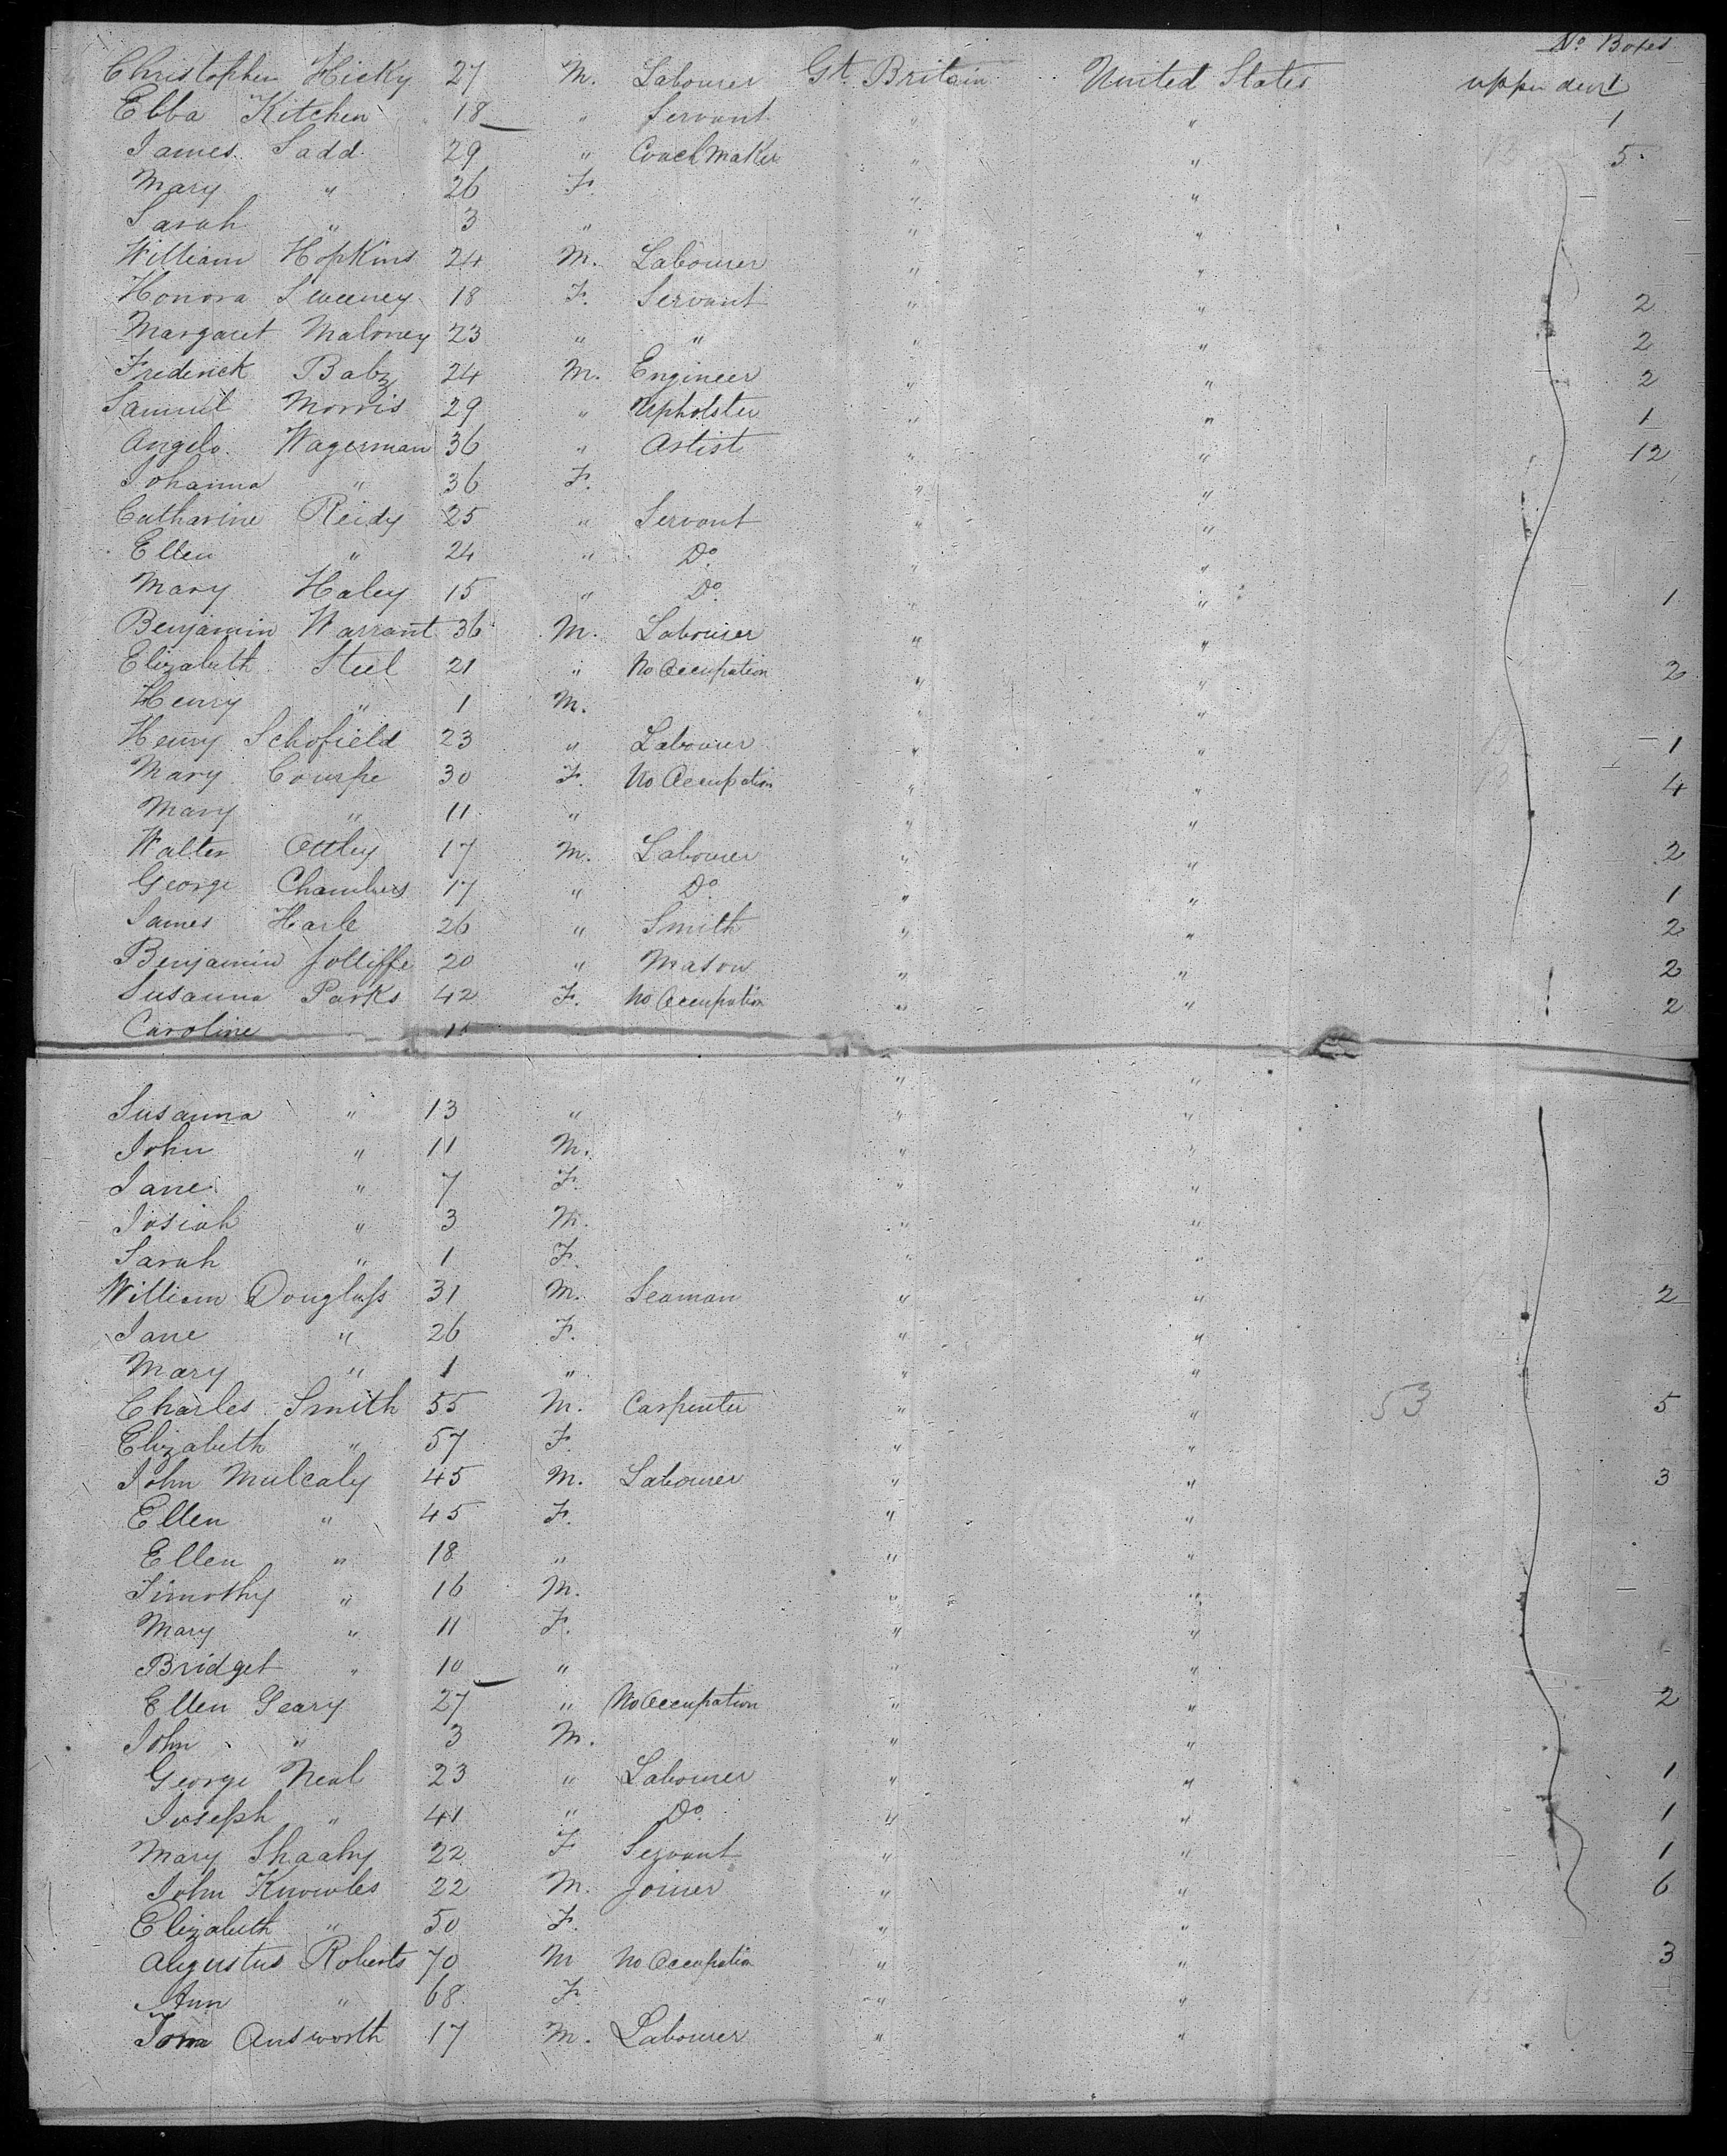 No Boxes
Christopher Hicky 27 M. Labourer Gt. Britain United States upper deck 1
Ebba Kitchen 18 " Servant " " 1
James Sadd 29 " Coach Maker " " 5
Mary " 26 F. " "
Sarah " 3 " " "
William Hopkins 24 M. Labourer " "
Honora Sweeney 18 F. Servant " " 2
Margaret Maloney 23 " " " " 2
Frederick Babz 24 M. Engineer " " 2
Samuel Morris 29 " Upholster " " 1
Angelo Wagerman 36 " Artist " " 12
Johanna " 36 F. " "
Catharine Reidy 25 " Servant " "
Ellen " 24 " Do. " "
Mary Haley 15 " Do. " " 1
Benjamin Warrant 36 M. Labourer " "
Elizabeth Steel 21 " No Occupation " " 2
Henry " 1 M. " "
Henry Schofield 23 " Labourer " " 1
Mary Courpe 30 F. No Occupation " " 4
Mary " 11 " " "
Walter Ottley 17 M. Labourer " " 2
George Chambers 17 " Do " " 1
James Harle 26 " Smith " " 2
Benjamin Jolliffe 20 " Mason " " 2
Susanna Parks 42 F. No Occupation " " 2
Caroline
" "
Susanna " 13 " " "
John " 11 M. " "
Jane " 7 F. " "
Josiah " 3 M. " "
Sarah " 1 F. " "
William Douglass 31 M. Seaman " " 2
Jane " 26 F. " "
Mary " 1 " " "
Charles Smith 55 M. Carpenter " " 53 5
Elizabeth " 57 F. " "
John Mulcaly 45 M. Labourer " " 3
Ellen " 45 F. " "
Ellen " 18 " " "
Timothy " 16 M. " "
Mary " 11 F. " "
Bridget " 10 " " "
Ellen Geary 27 " No Occupation " " 2
John " 3 M. " "
George Neal 23 " Labourer " " 1
Joseph " 41 " Do " " 1
Mary Shaahy 22 F Servant " " 1
John Knowles 22 M. Joiner " " 6
Elizabeth " 50 F. " "
Augustus Roberts 70 M No Occupation " " 3
Ann " 68 F. " "
Tom Answorth 17 M. Labourer " "